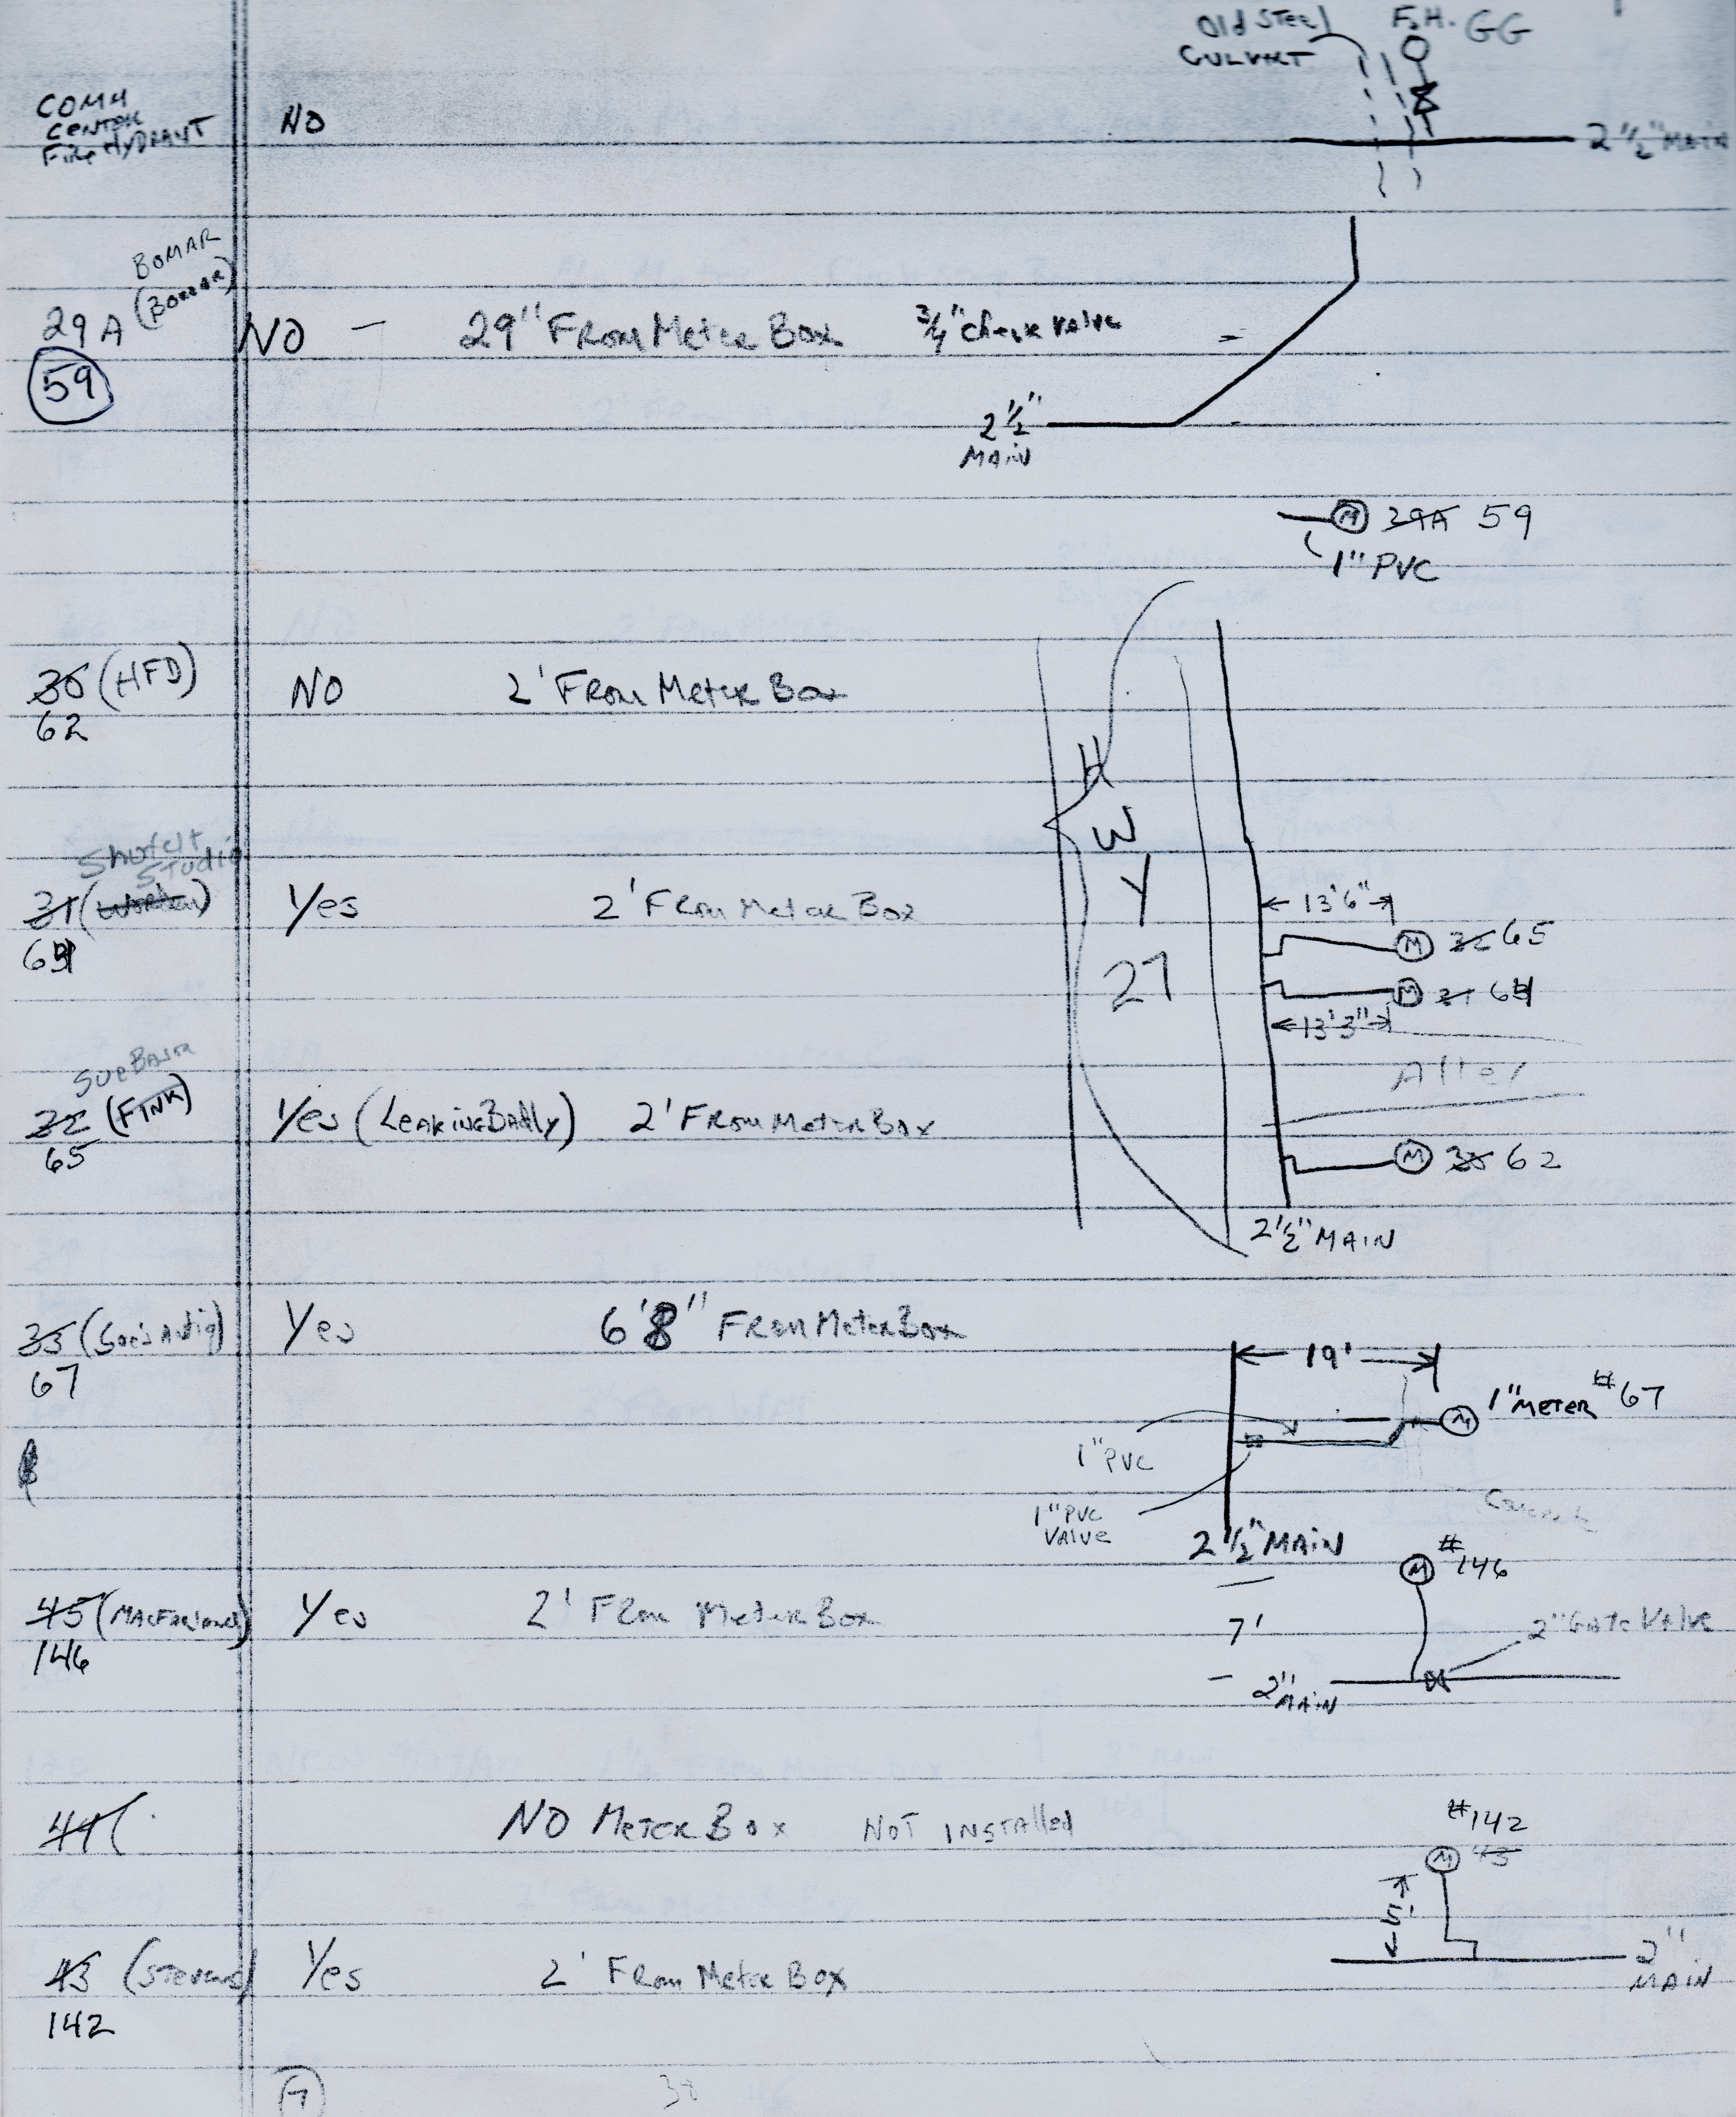 Old Steel F.H. GG
CULVERT
COMM
CENTER
Fire HYDRANT NO
2 1/2" MAIN
BOMAR
29A
NO — 29" From Meter Box 3/4" check valve
59
2 1/2"
MAIN
M 29A 59
1" PVC
30 (HFD) NO 2' From Meter Box
62
H
W
Y
27
Shufelt
Studio
31 Yes 2' From Meter Box
13'6"
M 32 65
M 31
13'3"
Alley
Sue
32 (FINK) Yes (LEAKING BADLY) 2' From Meter Box
65
M 30 62
2 1/2" MAIN
33 Yes 6'8" From Meter Box
67
19'
M 1" METER #67
1" PVC
1" PVC
VALVE
Concrete
2 1/2" MAIN
M #146
45 Yes 2' From Meter Box
146
7'
2" Gate Valve
2" MAIN
44( NO Meter Box NOT INSTALLED
#142
M 43
5'
43 (Stevens) Yes 2' From Meter Box
142
2"
MAIN
7 38